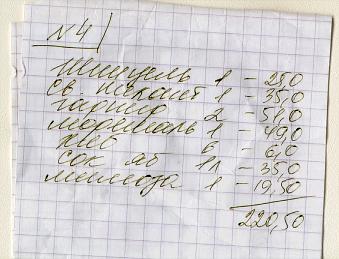 №4
Шницель 1 - 25,0
св. пикант 1 - 35,0
гарнир 2 - 51,0
моренталь 1 - 49,0
хлеб 6 - 6,0
сок яб 1л - 35,0
мимоза 1 - 19,50
220,50